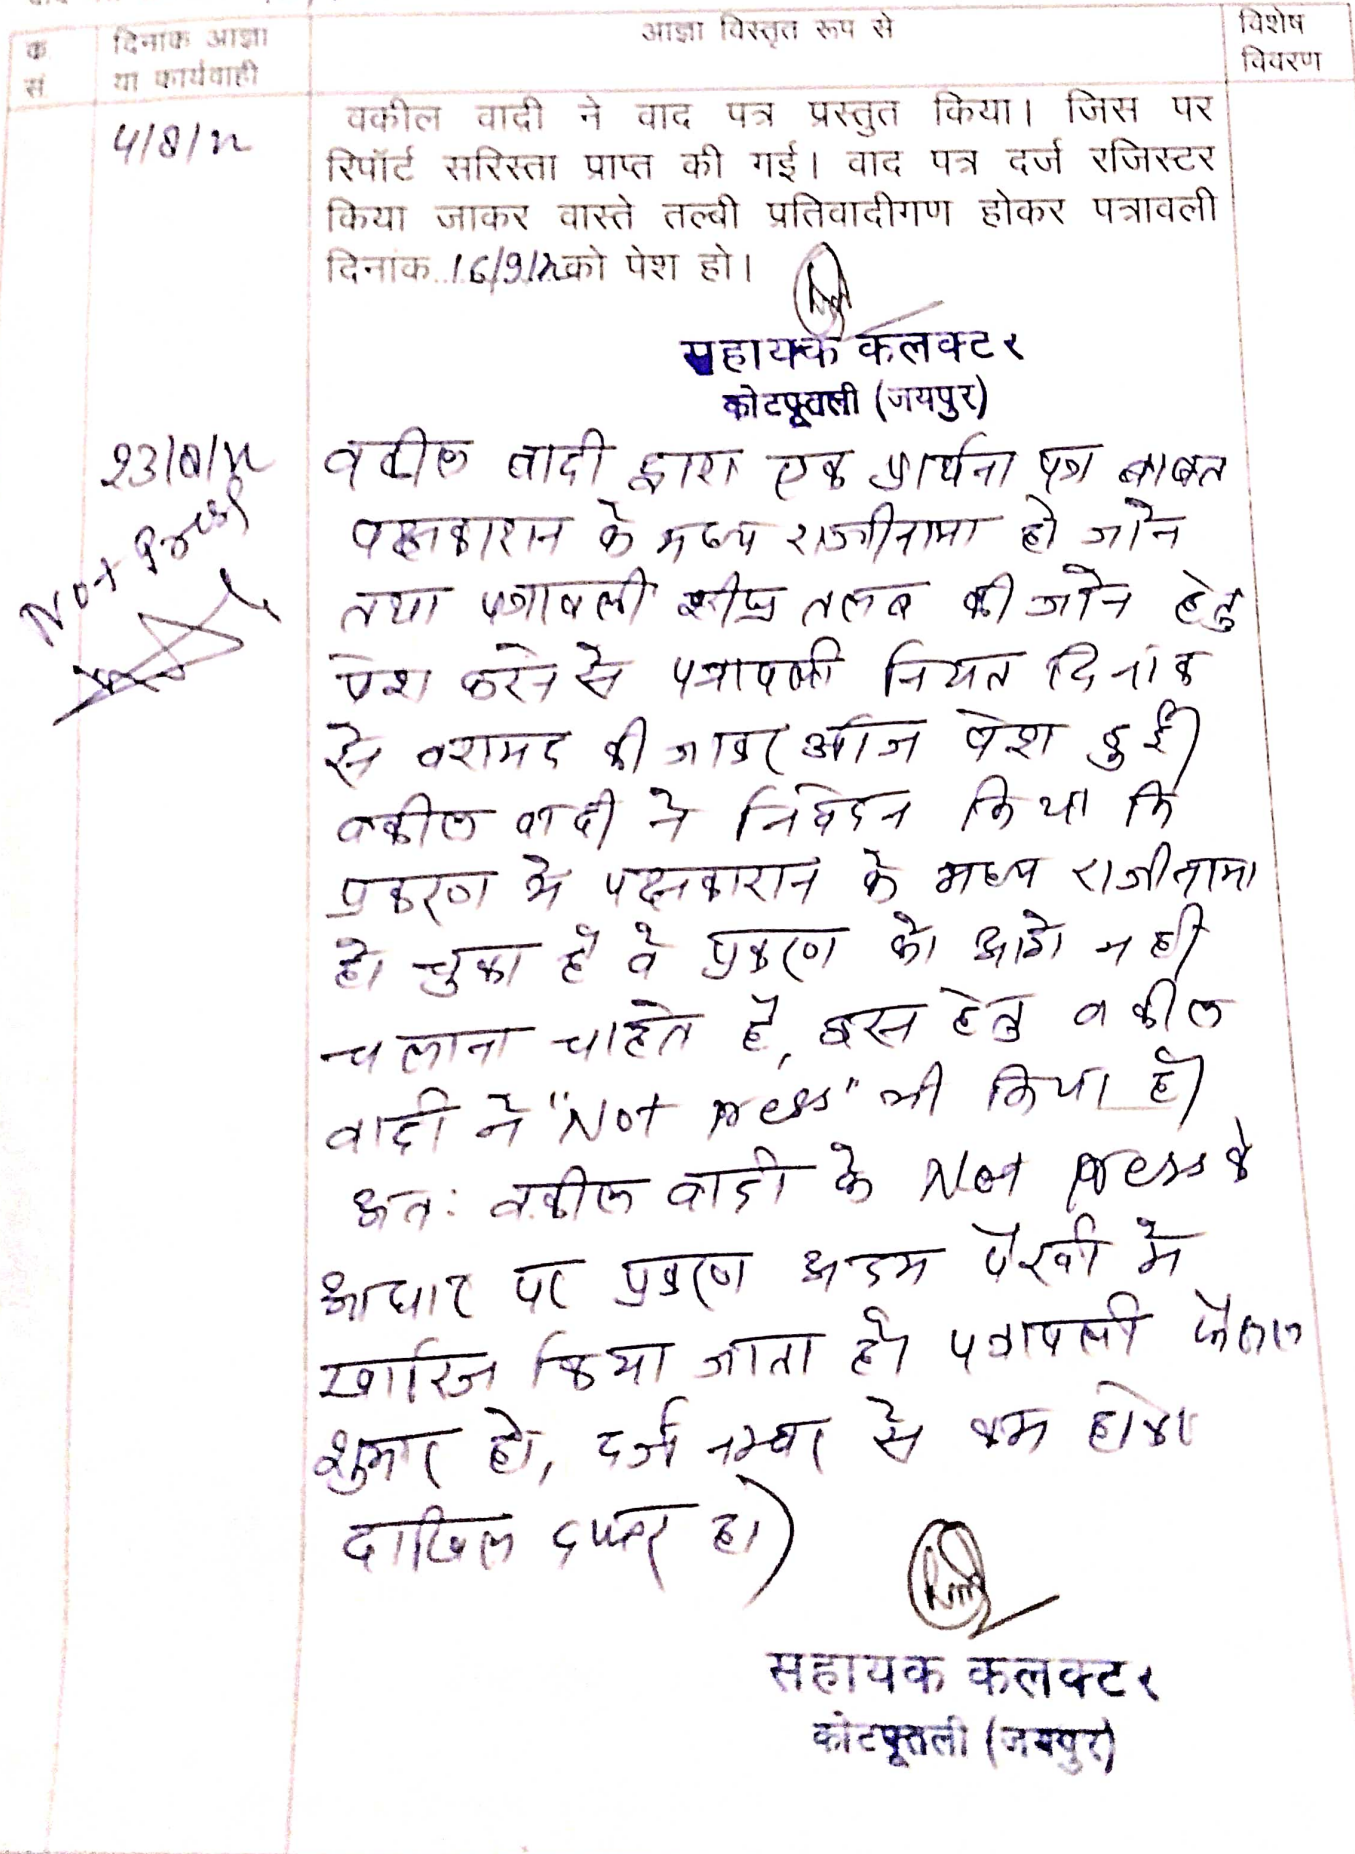 क. सं.
दिनांक आज्ञा या कार्यवाही
आज्ञा विस्तृत रूप से
विशेष विवरण
4/8/22
वकील वादी ने वाद पत्र प्रस्तुत किया। जिस पर
रिपोर्ट सरिस्ता प्राप्त की गई। वाद पत्र दर्ज रजिस्टर
किया जाकर वास्ते तल्बी प्रतिवादीगण होकर पत्रावली
दिनांक..16/9/22को पेश हो।
सहायक कलक्टर
कोटपूतली (जयपुर)
23/8/22
Not Press
वकील वादी द्वारा एक प्रार्थना पत्र बाबत
पक्षकारान के मध्य राजीनामा हो जाने
तथा पत्रावली शीघ्र तलब की जाने हेतु
पेश करने से पत्रावली नियत दिनांक
से बरामद की जाकर आज पेश हुई।
वकील वादी ने निवेदन किया कि
प्रकरण में पक्षकारान के मध्य राजीनामा
हो चुका है वे प्रकरण को आगे नही
चलाना चाहते है, इस हेतु वकील
वादी ने "Not press" भी किया है।
अतः वकील वादी के Not press के
आधार पर प्रकरण अदम पैरवी में
खारिज किया जाता है। पत्रावली फैसल
शुमार हो, दर्ज नम्बर से कम होकर
दाखिल दफ्तर हो।
सहायक कलक्टर
कोटपूतली (जयपुर)